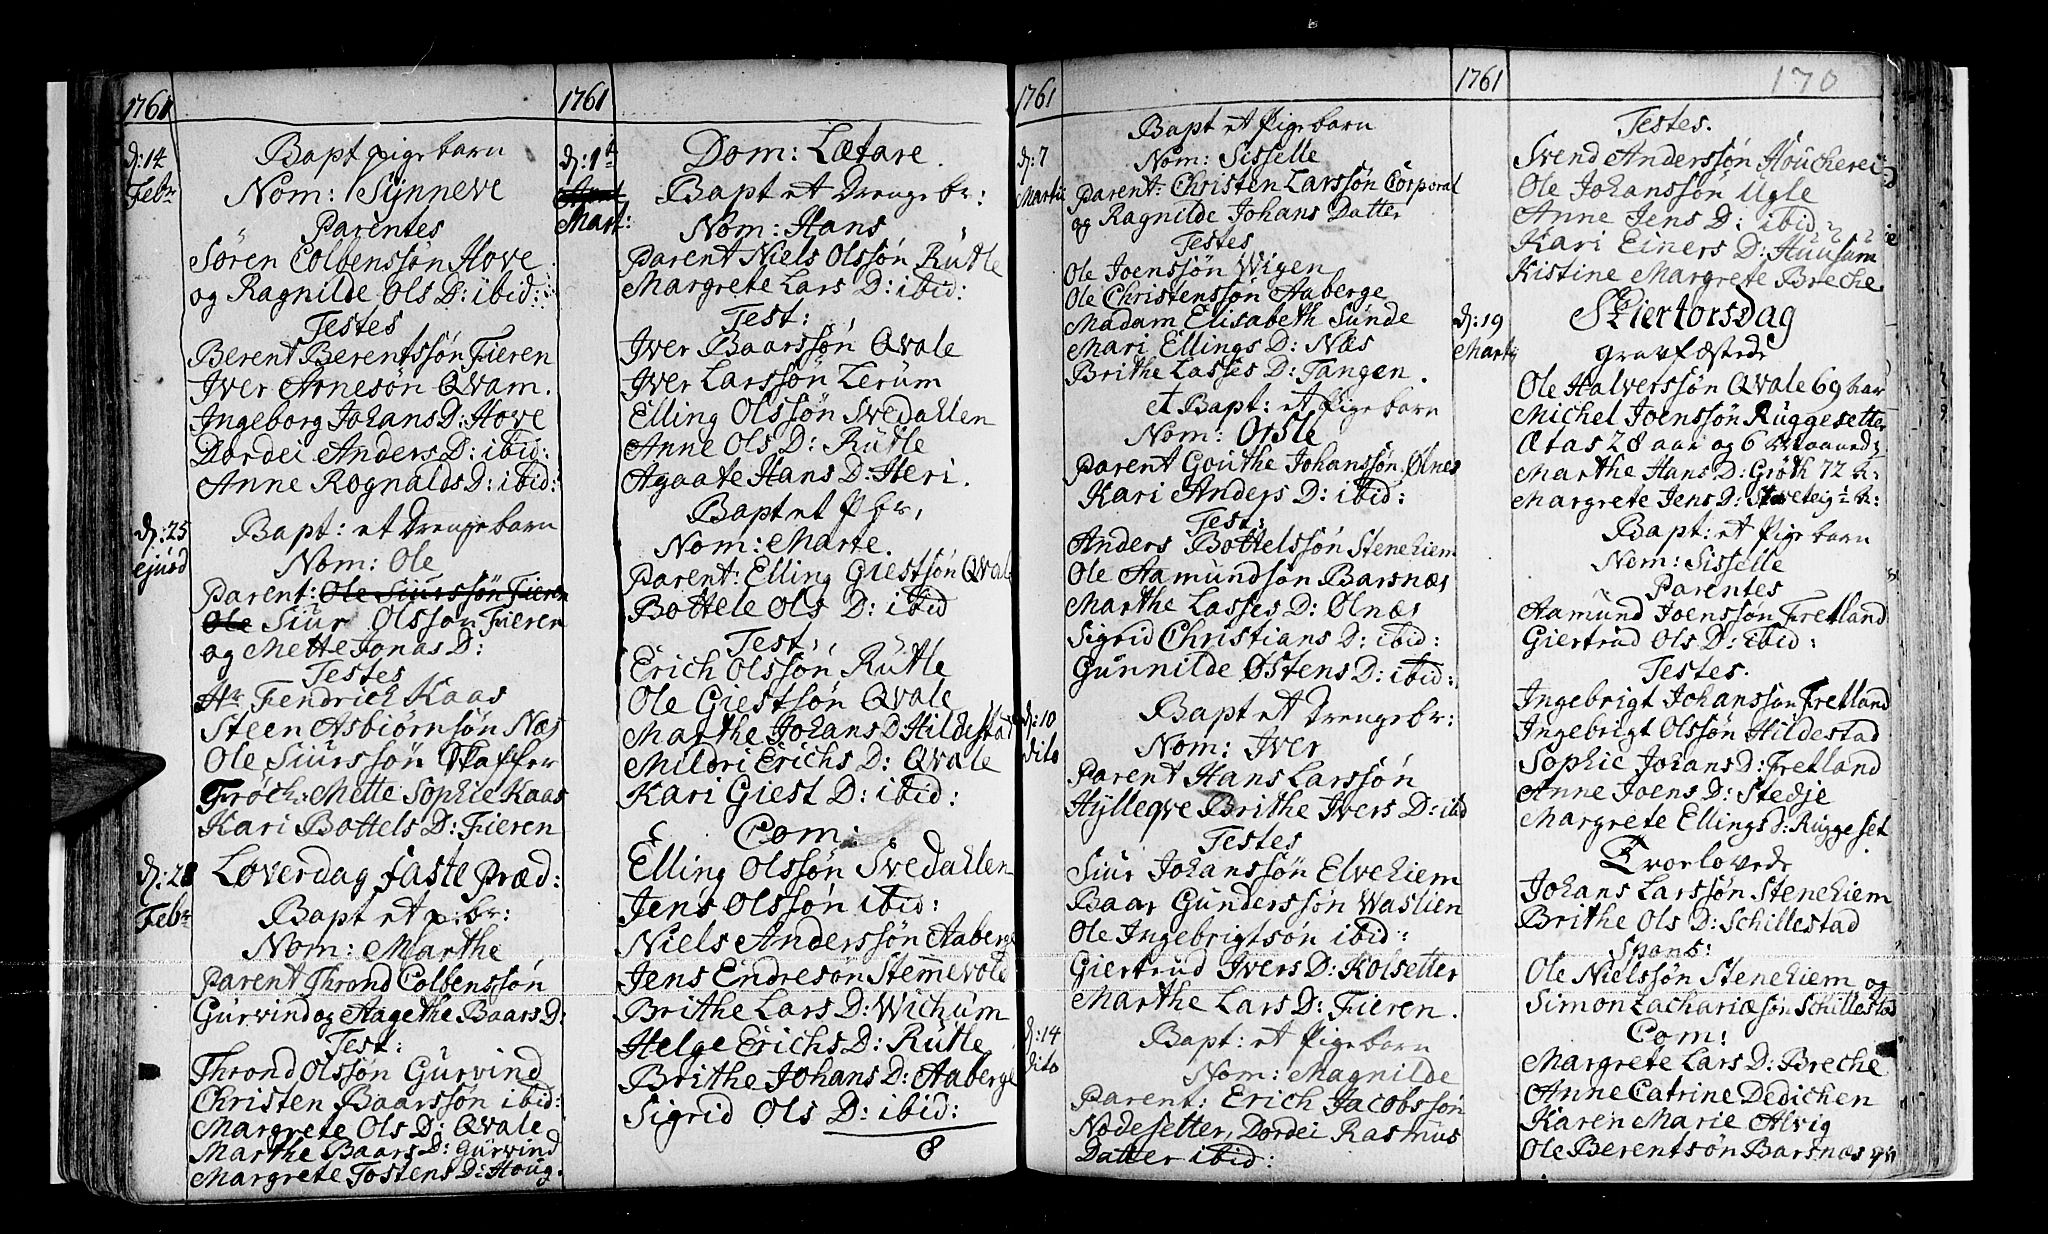 1761
d: 14
Febr
Bapt pige barn
Nom: Synneve
Parentes
Sören Colbenssön Hove
og Ragnilde Ols D: ibid:
Testes
Berent Berentssön Fieren
Iver Arnesön Qvam.
Ingeborg Johans D: Hove
Dordei Anders D: ibid:
Anne Rognalds D: ibid:
d: 25
ejusd
Bapt: et Drengebarn
Nom: Ole
Parent: Ole Siurssön Fieren
Ole Siur Olsson Fieren
og Mette Jonas D:
Testes
Hr Fendrich Kaas
Steen Asbiörnsön Næs
Ole Siurssön Skaffer
Fröch: Mette Sophie Kaas
Kari Bottels D: Fieren
d: 28
Febr
Löverdag faste Præd:
Bapt et p: br:
Nom: Marthe
Parent Thrond Colbenssön
Gurvind og Aagethe Baars D:
Test:
Thrond Olssön Gurvind
Christen Baarssön ibid:
Margrete Ols D: Qvale
Marthe Baars D: Gurvind
Margrete Tostens D: Houg.
1761
d: 1
Mart:
Dom: Lætare.
Bapt et Drenge br:
Nom: Hans
Parent Niels Olssön Rutle
Margrete Lars D: ibid:
Test:
Iver Baarssön Qvale
Iver Larssön Lerum
Elling Olssön Svedahlen
Anne Ols D: Rutle
Agaate Hans D: Heri.
Bapt et P br,
Nom: Marte.
Parent: Elling Giestsön Qvale
Bottele Ols D: ibid
Test,
Erich Olssön Rutle
Ole Giestsön Qvale
Marthe Johans D Hildestad
Mildri Erichs D: Qvale
Kari Giest D: ibid:
Com:
Elling Olssön Svedahlen
Jens Olssön ibid:
Niels Anderssön Aaberge
Jens Endresön Stemmevold
Brithe Lars D: Wichum
Helge Erichs D: Rutle
Brithe Johans D: Aaberge
Sigrid Ols D: ibid:
8
1761
d: 7
Martii
Bapt et Pige barn
Nom: Sisselle
Parent: Christen Larssön Corporal
og Ragnilde Johans Datter
Testes
Ole Joenssön Wigen
Ole Christenssön Aaberge
Madam Elisabeth Sunde
Mari Ellings D: Næs
Brithe Lasses D: Tangen.
et Bapt: et Pige barn
Nom: Orsle
Parent Gouthe Johanssön Ølnes
Kari Anders D: ibid:
Test:
Anders Bottelssön Stenehiem
Ole Aamundsön Barsnæs
Marthe Lasses D: Ølnæs
Sigrid Christians D: ibid:
Gunnilde Østens D: ibid:
d: 10
dito
Bapt et Drenge br:
Nom: Iver
Parent Hans Larssön
Hylleqve Brithe Ivers D: ibid
Testes
Siur Johanssön Elvehiem
Baar Gunderssön Waslien
Ole Ingebrigtsön ibid:
Giertrud Ivers D: Kolsetter
Marthe Lars D: Fieren.
d: 14
dito
Bapt: et Pige barn
Nom: Magnilde
Parent: Erich Jacobssön
Nodesetter, Dordei Rasmus
Datter ibid:
1761
170
Testes.
Svend Anderssön Houcherei
Ole Johanssön Ugle
Anne Jens D: ibid:
Kari Einers D: Huusum
Kistine Margrete Breche
d: 19
Martij
Skiertorsdag
gravfæstede
Ole Halverssön Qvale 69 aar
Michel Joenssön Ruggesetter
Ætas 28 aar og 6 maaned
Marthe Hans D: Gröth 72
Margrete Jens D:
Bapt: et Pige barn
Nom: Sisselle
Parentes
Aamund Joenssön Fretland
Giertrud Ols D: ibid:
Testes.
Ingebrigt Johanssön Fretland
Ingebrigt Olssön Hildestad
Sophie Johans D: Fretland
Anne Joens D: Stedje
Margrete Ellings d: Rugge set.
Trorlovede
Johans Larssön Stenehiem
Brithe Ols D: Schillestad
Spons:
Ole Nielssön Stenehiem og
Simon Zachariæsön Schillestad
Com:
Margrete Lars D: Breche
Anne Catrine Dedichen
Karen Marie Alvig
Ole Berentsön Barsnæs